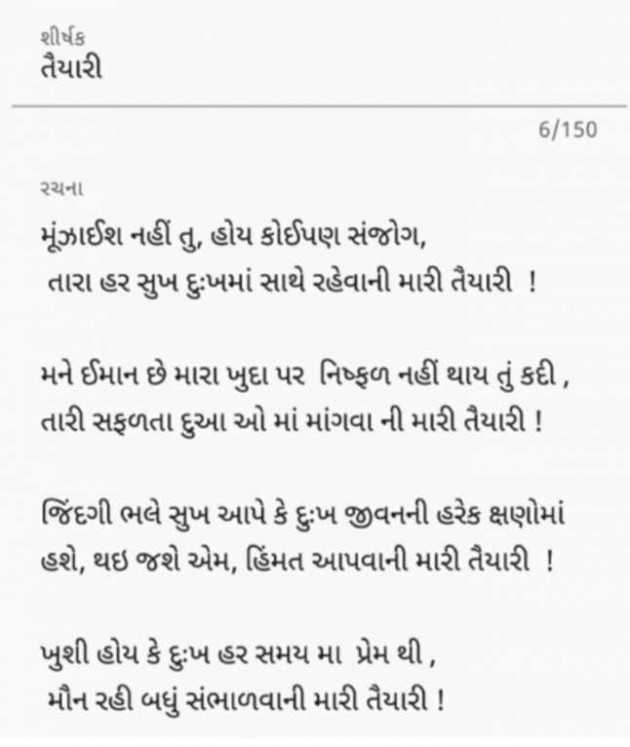 શીર્ષક
તૈયારી
6/150
રચના
મૂંઝાઈશ નહીં તુ, હોય કોઈપણ સંજોગ,
તારા હર સુખ દુઃખમાં સાથે રહેવાની મારી તૈયારી !
મને ઈમાન છે મારા ખુદા પર નિષ્ફળ નહીં થાય તું કદી ,
તારી સફળતા દુઆ ઓ માં માંગવા ની મારી તૈયારી !
જિંદગી ભલે સુખ આપે કે દુઃખ જીવનની હરેક ક્ષણોમાં
હશે, થઇ જશે એમ, હિંમત આપવાની મારી તૈયારી !
ખુશી હોય કે દુઃખ હર સમય મા પ્રેમ થી ,
મૌન રહી બધું સંભાળવાની મારી તૈયારી !